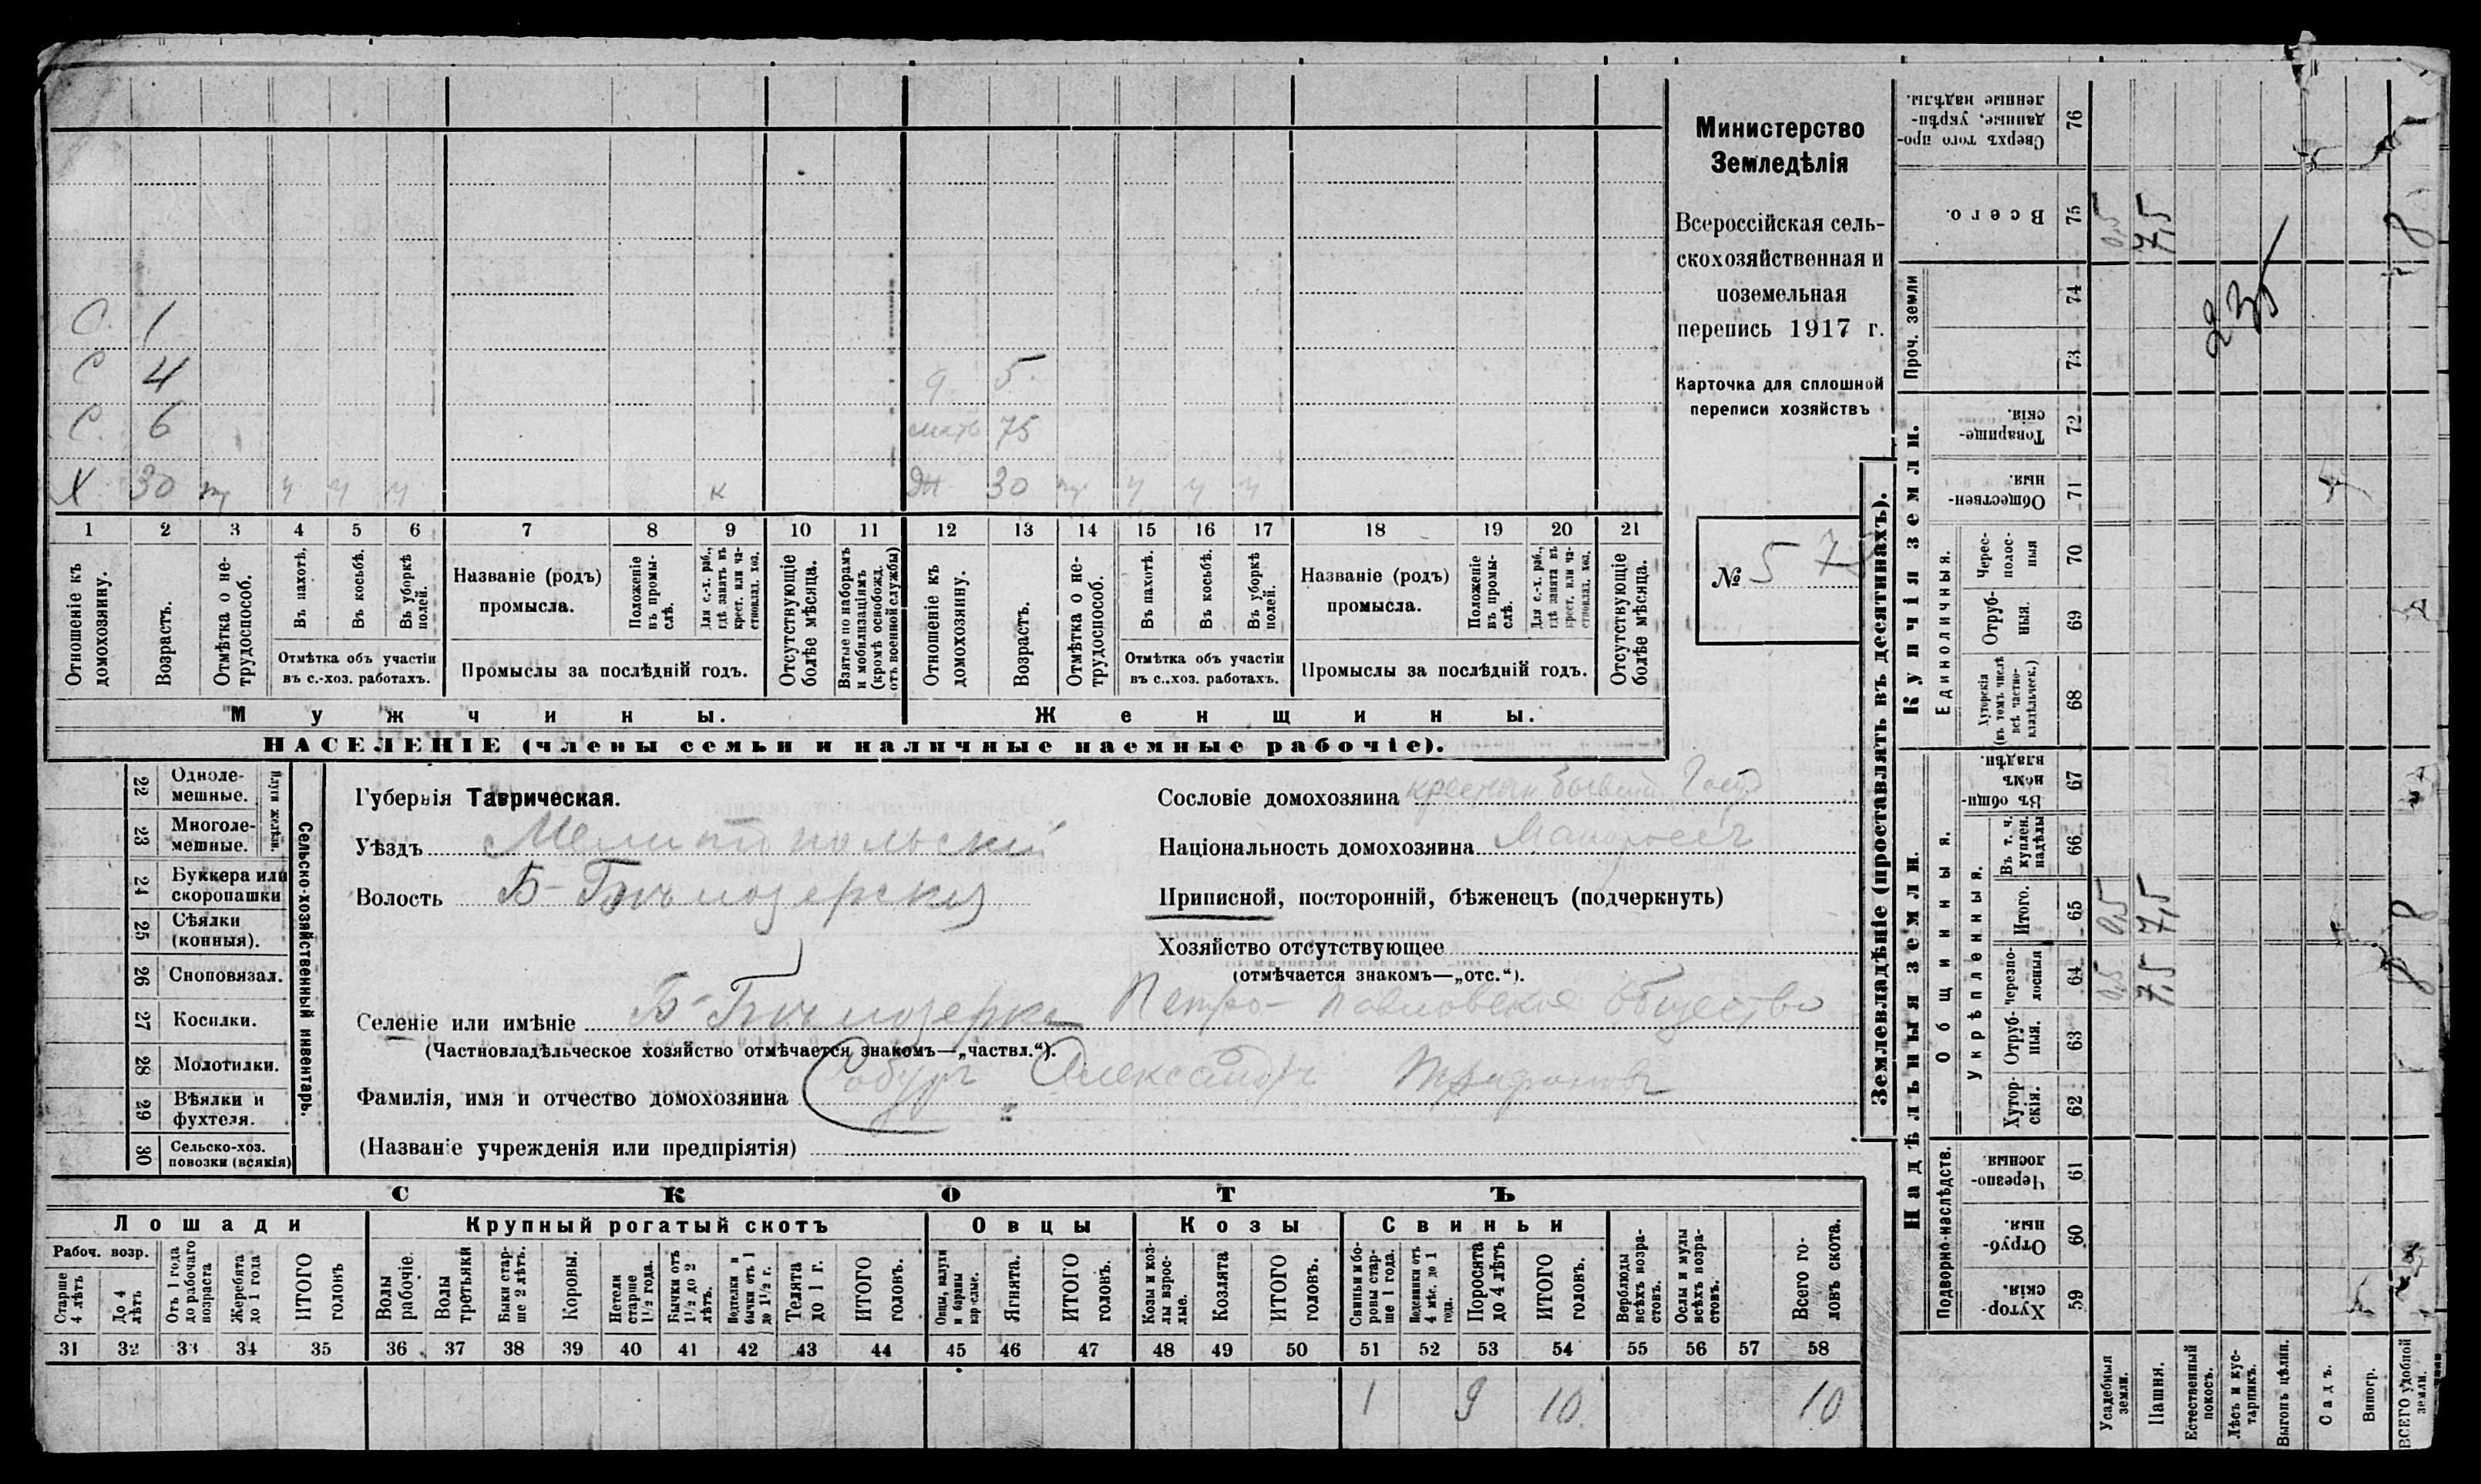 С. 1
С 4 д. 5.
С. 6 мать 75
Х 30 ч ч ч к 30 ч ч ч
1 2 3 4 5 6 7 8 9 10 11 12 13 14 15 16 17 18 19 20 21
Отношеніе къ домохозяину.
Возрастъ.
Отмѣтка о не-трудоспособ.
Въ пахотѣ.
Въ косьбѣ.
Въ уборкѣ полей.
Отмѣтка объ участіи
въ с.-хоз. работахъ.
Названіе (родъ)
промысла.
Положеніе въ промы-слѣ.
Для с.-х. раб., гдѣ занятъ въ крест. или ча-стновлад. хоз.
Промыслы за послѣдній годъ.
Отсутствующіе болѣе мѣсяца.
Взятые по наборамъ и мобилизаціямъ (кромѣ освобожд. отъ военной службы)
Отношеніе къ домохозяину.
Возрастъ.
Отмѣтка о не-трудоспособ.
Въ пахотѣ.
Въ косьбѣ.
Въ уборкѣ полей.
Отмѣтка объ участіи
въ с.-хоз. работахъ.
Названіе (родъ)
промысла.
Положеніе въ промы-слѣ.
Для с.-х. раб., гдѣ занята въ крест. или ча-стновлад. хоз.
Промыслы за послѣдній годъ.
Отсутствующіе болѣе мѣсяца.
Мужчины. Женщины.
НАСЕЛЕНІЕ (члены семьи и наличные наемные рабочіе).
Министерство
Земледѣлія
Всероссійская сель-
скохозяйственная и
поземельная
перепись 1917 г.
Карточка для сплошной
переписи хозяйствъ
№ 57
22 Одноле-мешные.
23 Многоле-мешные.
Плуги желѣзн.
24 Буккера или скоропашки
25 Сѣялки (конныя).
26 Сноповязал.
27 Косилки.
28 Молотилки.
29 Вѣялки и фухтеля.
30 Сельско-хоз. повозки (всякія)
Сельско-хозяйственный инвентарь.
Губернія Таврическая.
Уѣздъ Мелитопольскій
Волость Б-
Сословіе домохозяина крестьян. бывш. Гос
Національность домохозяина Малоросс
Приписной, посторонній, бѣженецъ (подчеркнуть)
Хозяйство отсутствующее
(отмѣчается знакомъ—„отс.“).
Селеніе или имѣніе Б- Петро-Павловское общество
(Частновладѣльческое хозяйство отмѣчается знакомъ—„частвл.“).
Фамилія, имя и отчество домохозяина Собур Александръ
(Названіе учрежденія или предпріятія)
СКОТЪ
Лошади Крупный рогатый скотъ Овцы Козы Свиньи
Рабоч. возр.
Старше 4 лѣтъ
До 4 лѣтъ
Отъ 1 года до рабочаго возраста
Жеребята до 1 года
ИТОГО головъ
Волы рабочіе.
Волы третьяки
Быки стар-ше 2 лѣтъ.
Коровы.
Нетели старше 1½ года.
Бычки отъ 1½ до 2 лѣтъ.
Телята до 1 г.
ИТОГО головъ.
Ягнята.
ИТОГО головъ.
Козы и коз-лы взрос-лые.
Козлята
ИТОГО головъ.
Свиньи и бо-ровы стар-ше 1 года.
Поросята до 4 лѣтъ
ИТОГО головъ.
Верблюды всѣхъ возра-стовъ.
Ослы и мулы всѣхъ возра-стовъ.
Всего го-ловъ скота.
31 32 33 34 35 36 37 38 39 40 41 42 43 44 45 46 47 48 49 50 51 52 53 54 55 56 57 58
1 9 10. 10
Землевладѣніе (проставлять въ десятинахъ).
Купчія земли.
Надѣльныя земли.
Сверхъ того про-данные, укрѣп-ленные надѣлы. 76
Всего. 75 0,5 7,5 8
Проч. земли 74
73
235
Товарище-скія. 72
Обществен-ныя. 71
Единоличныя.
Черес-полос-ныя 70
Отруб-ныя. 69
Хуторскія (въ томъ числѣ всѣ частно-владѣльческ.) 68
Общинныя.
Въ общи-номъ владѣн. 67
Укрѣпленныя.
Въ т. ч. куплен. надѣлы 66
Итого. 65 0,5 7,5 8
Черезпо-лосныя 64 0,5 7,5 8
Отруб-ныя. 63
Хутор-скія. 62
Подворно-наслѣдств.
Черезпо-лосныя. 61
Отруб-ныя. 60
Хутор-скія. 59
Усадебныя земли.
Пашня.
Естественный покосъ.
Лѣсъ и кус-тарникъ.
Выгонъ цѣлин.
Садъ.
Виногр.
ВСЕГО удобной земли.